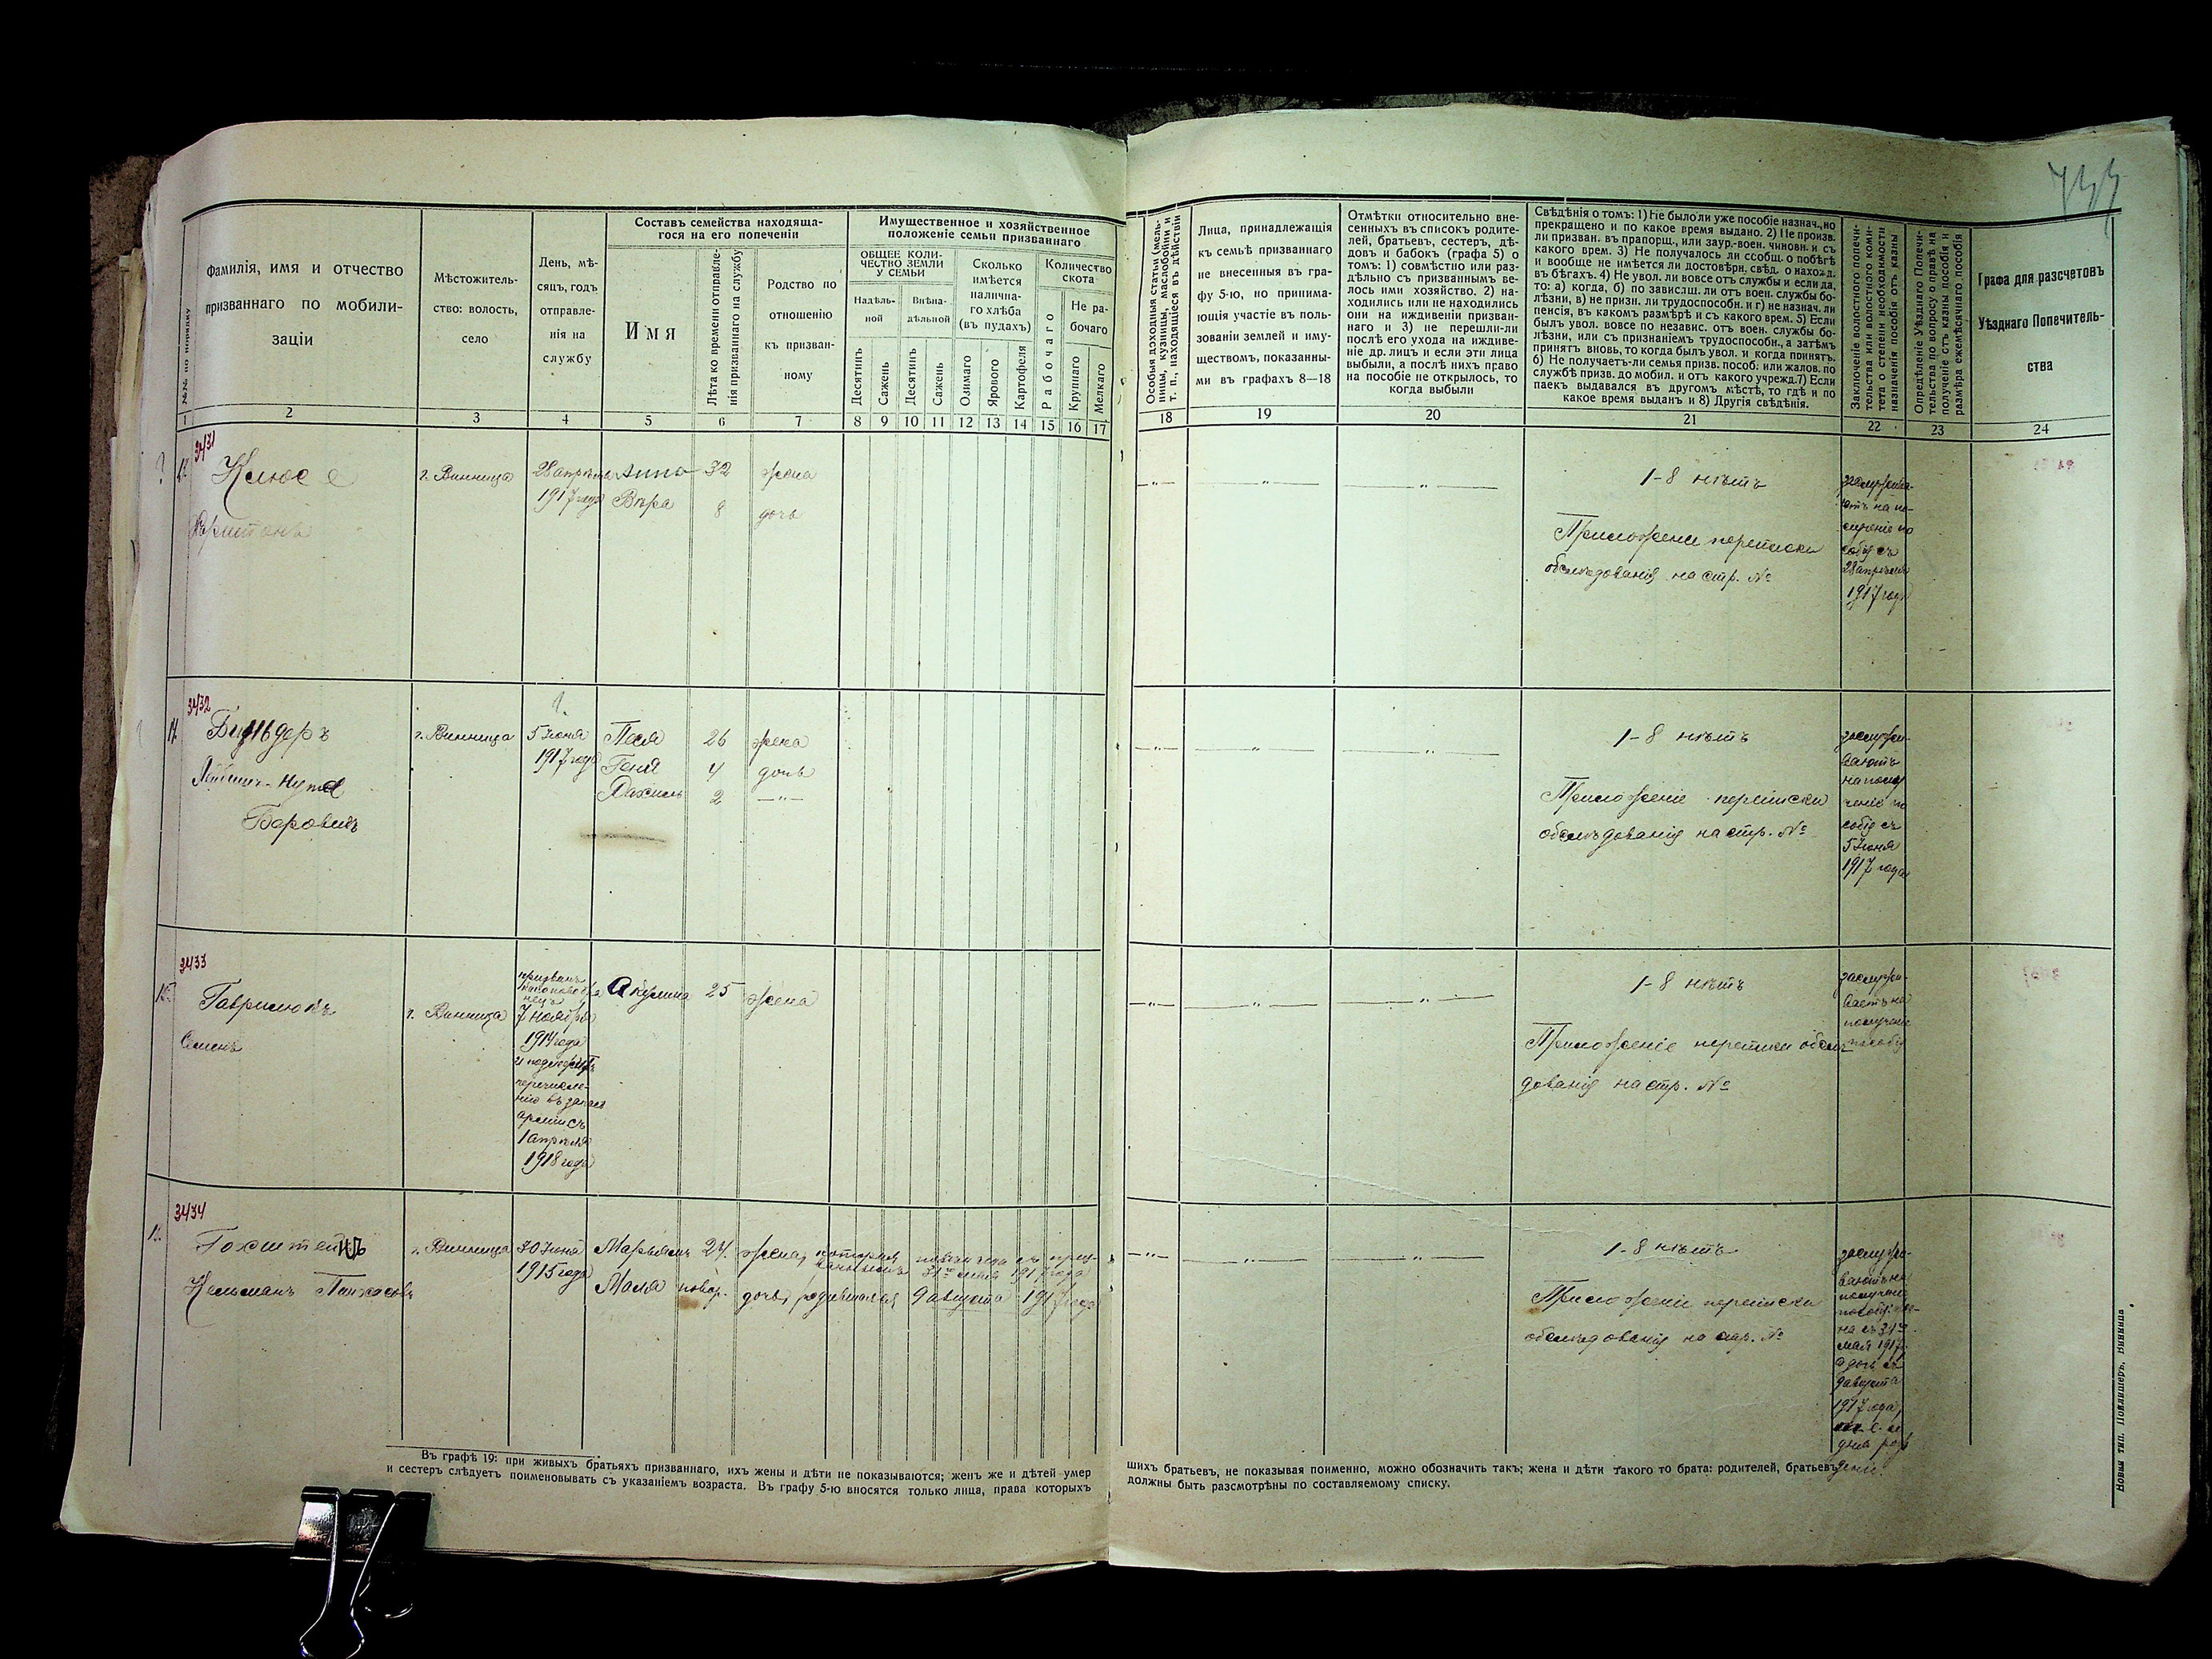 Фамилія, имя и отчество
призваннаго по мобили-
заціи
Мѣстожитель-
ство: волость,
село
День, мѣ-
сяцъ, годъ
отправле-
нія на
службу
Составъ семейства находяща-
гося на его попеченіи
Имя
Лѣта ко времени отправле-
нія призваннаго на службу
Родство по
отношенію
къ призван-
ному
Имущественное и хозяйственное
положеніе семьи призваннаго
ОБЩЕЕ КОЛИ-
ЧЕСТВО ЗЕМЛИ
У СЕМЬИ
Надѣль-
ной
Внѣна-
дѣльной
Десятинъ
Сажень
Десятинъ
Сажень
Сколько
имѣется
налична-
го хлѣба
(въ пудахъ)
Озимаго
Ярового
Картофеля
Количество
скота
Рабочаго
Не ра-
бочаго
Крупнаго
Мелкаго
Особыя доходныя статьи (мель-
ницы, кузницы, маслобойни и
т. п., находящіеся въ дѣйствіи
Лица, принадлежащія
къ семьѣ призваннаго
не внесенныя въ гра-
фу 5-ю, но принима-
ющія участіе въ поль-
зованіи землей и иму-
ществомъ, показанны-
ми въ графахъ 8—18
Отмѣтки относительно вне-
сенныхъ въ списокъ родите-
лей, братьевъ, сестеръ, дѣ-
довъ и бабокъ (графа 5) о
томъ: 1) совмѣстно или раз-
дѣльно съ призваннымъ ве-
лось ими хозяйство. 2) на-
ходились или не находились
они на иждивеніи призван-
наго и 3) не перешли-ли
послѣ его ухода на иждиве-
ніе др. лицъ и если эти лица
выбыли, а послѣ нихъ право
на пособіе не открылось, то
когда выбыли
Свѣдѣнія о томъ: 1) Не было ли уже пособіе назнач., но
прекращено и по какое время выдано. 2) Не произв.
ли призван. въ прапорщ., или заур.-воен. чиновн. и съ
какого врем. 3) Не получалось ли сообщ. о побѣгѣ
и вообще не имѣется ли достовѣрн. свѣд. о нахожд.
въ бѣгахъ. 4) Не увол. ли вовсе отъ службы и если да,
то: а) когда, б) по зависящ. ли отъ воен. службы бо-
лѣзни, в) не призн. ли трудоспособн. и г) не назнач. ли
пенсія, въ какомъ размѣрѣ и съ какого врем. 5) Если
былъ увол. вовсе по независ. отъ воен. службы бо-
лѣзни, или съ признаніемъ трудоспособн., а затѣмъ
принятъ вновь, то когда былъ увол. и когда принятъ.
6) Не получаетъ-ли семья призв. пособ. или жалов. по
службѣ призв. до мобил. и отъ какого учрежд. 7) Если
паекъ выдавался въ другомъ мѣстѣ, то гдѣ и по
какое время выданъ и 8) Другія свѣдѣнія.
Заключеніе волостного попечи-
тельства или волостного коми-
тета о степени необходимости
назначенія пособія отъ казны
Опредѣленіе Уѣзднаго Попечи-
тельства по вопросу о правѣ на
полученіе отъ казны пособія и
размѣра ежемѣсячнаго пособія
Графа для разсчетовъ
Уѣзднаго Попечитель-
ства
1 2 3 4 5 6 7 8 9 10 11 12 13 14 15 16 17 18 19 20 21 22 23 24
3431
Клюс
Харитонъ
г. Винница
28 апрѣля
1917 года
Анна 32 жена
Вѣра 8 дочь
1-8 нѣтъ
Приложеніе переписки
обслѣдованія на стр. №
28 апрѣля
1917 года
3432
Боровичъ
г. Винница
5 Іюня
1917 года
Песя 26 жена
Геня 4 дочь
Рахиль 2 —"—
1-8 нѣтъ
Приложеніе переписки
обслѣдованія на стр. №
заслужи-
ваютъ
на полу
ченіе по
собія съ
5 Іюня
1917 года
3433
Гаврилюкъ
Семенъ
г. Винница
7 ноября
1914 года
перечисле-
нію въ запасъ
арміи съ
1 апрѣля
1918 года
Акулина 25 жена
1-8 нѣтъ
Приложеніе переписки обслѣ
дованія на стр. №
заслужи-
ваетъ на
полученіе
пособія
3434
Гохштейнъ
Кельманъ
г. Винница
30 Іюня
1915 года
Марьямъ 24 жена, которая
31го мая 1917 года
Маля новор. дочь, родившаяся 9 августа 1917 года
1-8 нѣтъ
Приложеніе переписки
обслѣдованія на стр. №
заслужи-
ваютъ на
полученіе
на съ 31го
мая 1917 г.
а дочь съ
9 августа
1917 года,
т. е. со
дня рож
денія.
Въ графѣ 19: при живыхъ братьяхъ призваннаго, ихъ жены и дѣти не показываются; женъ же и дѣтей умер
и сестеръ слѣдуетъ поименовывать съ указаніемъ возраста. Въ графу 5-ю вносятся только лица, права которыхъ
шихъ братьевъ, не показывая поименно, можно обозначить такъ; жена и дѣти такого то брата: родителей, братьевъ
должны быть разсмотрѣны по составляемому списку.